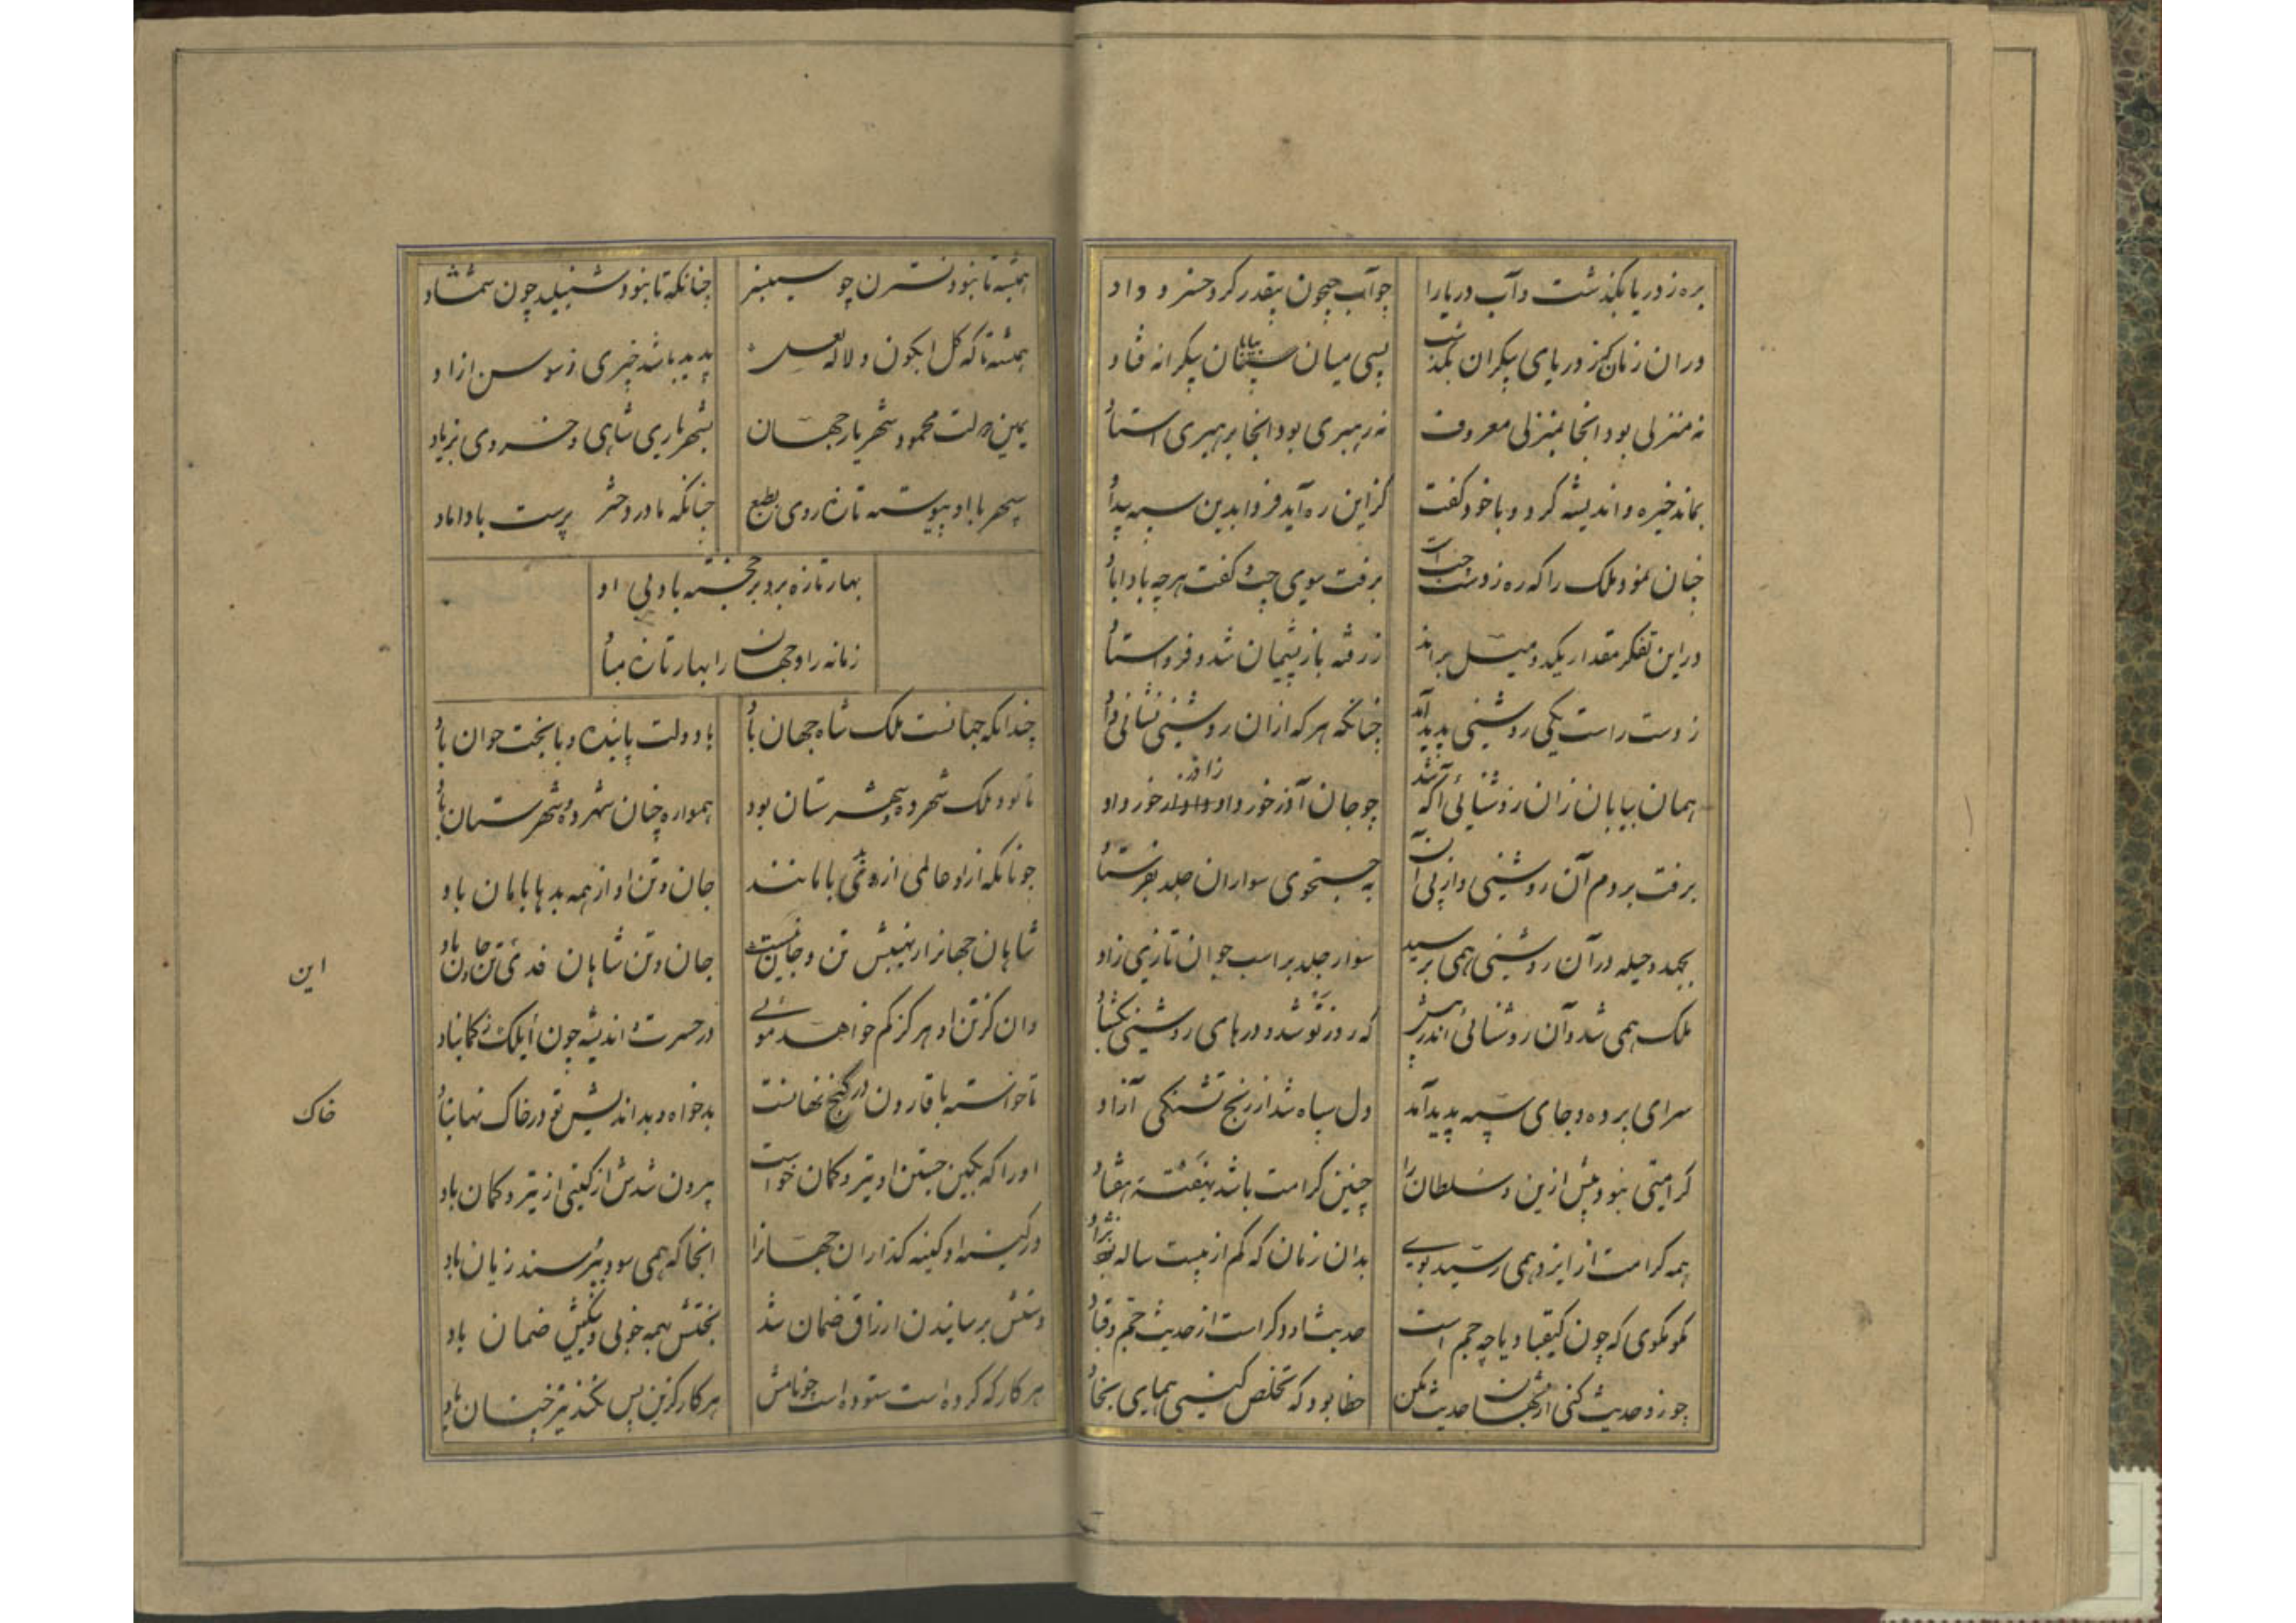 بره ز دریا بگذشت و آب دریا را
چو آب جیحون بیقدر کرد و خسر و داد
در آن زمان کز دریای بیکران بگذشت
بسی میان بیابان بیکرانه فتاد
نه منزلی بود آنجا بمنزلی معروف
نه رهبری بود آنجا برهبری استاد
بماند خیره و اندیشه کرد و با خود گفت
کز این ره آید فردا بدین سپه بیداد
چنان نمود ملک را که ره ز دست چپ است
برفت سوی چپ و گفت هر چه بادا باد
در این تفکر مقدار یک دو میل براند
ز رفته باز پشیمان شد و فرو استاد
ز دست راست یکی روشنی پدید آمد
چنانکه هر که ازان روشنی نشانی داد
همان بیابان زان روشنائی آگه شد
چو جان آذر خرداد زاذر خورداد
برفت بر دم آن روشنی و از پی آن
به جستجوی سواران جلد بفرستاد
بجهد و حیله در آن روشنی همی نرسید
سوار جلد بر اسب جوان تازی زاد
ملک همی شد و آن روشنائی اندر پیش
که روز نو شد و درهای روشنی بگشاد
سرای پرده و جای سپه پدید آمد
دل سپاه شد از رنج تشنگی آزاد
کرامتی نبود بیش ازین و سلطان را
چنین کرامت باشد نهفته هفتاد
همه کرامت از ایزد همی رسید بوی
بدان زمان که کم از بیست ساله بود نژاد
مگو مگوی که چون کیقباد یا چه جم است
حدیث او دگر است از حدیث جم و قباد
چو زو حدیث کنی از شهان حدیث مکن
خطا بود که تخلص کنی همای بخاد
همیشه تا نبود نسترن چو سیسنبر
چنانکه تا نبود شنبلید چون شمشاد
همیشه تا که گل آبگون و لاله لعل
پدید باشد خیری ز سوسن ازاد
یمین دولت محمود شهریار جهان
بشهریاری شاهی و خسروی بزیاد
سپهر با او پیوسته تازه روی بطبع
چنانکه مادر دختر پرست با داماد
بهار تازه برو بر خجسته باد و بی او
زمانه را و جهان را بهار تازه مباد
چندانکه جهانست ملک شاه جهان باد
با دولت پاینده و با بخت جوان باد
تا بود ملک شهر ده و شهرستان بود
همواره چنان شهر ده و شهرستان باد
چونانکه ازو عالمی از بد بامانند
جان و تن او از همه بدها بامان باد
شاهان جهان را بنهیبش تن و جان نیست
جان و تن شاهان فدی تن و جان باد
وان کز تن او هرگز کم خواهد موئی
در حسرت و اندیشه چون ایلک و خانباد
تا خواسته با قارون در گنج نهانست
بدخواه و بداندیش تو در خاک نهان باد
او را که بکین جستن او تیر و کمان خواست
بیرون شدنش از گیتی از تیر و کمان باد
در کینه او کینه گذاران جهان را
آنجا که همی سود بپرسند زیان باد
دستش برسانیدن ارزاق ضمان شد
بختش بهمه خوبی و نیکیش ضمان باد
هر کار که کرده است ستوده است چو نامش
هر کار کزین پس بکند نیز چنان باد
این
خاک